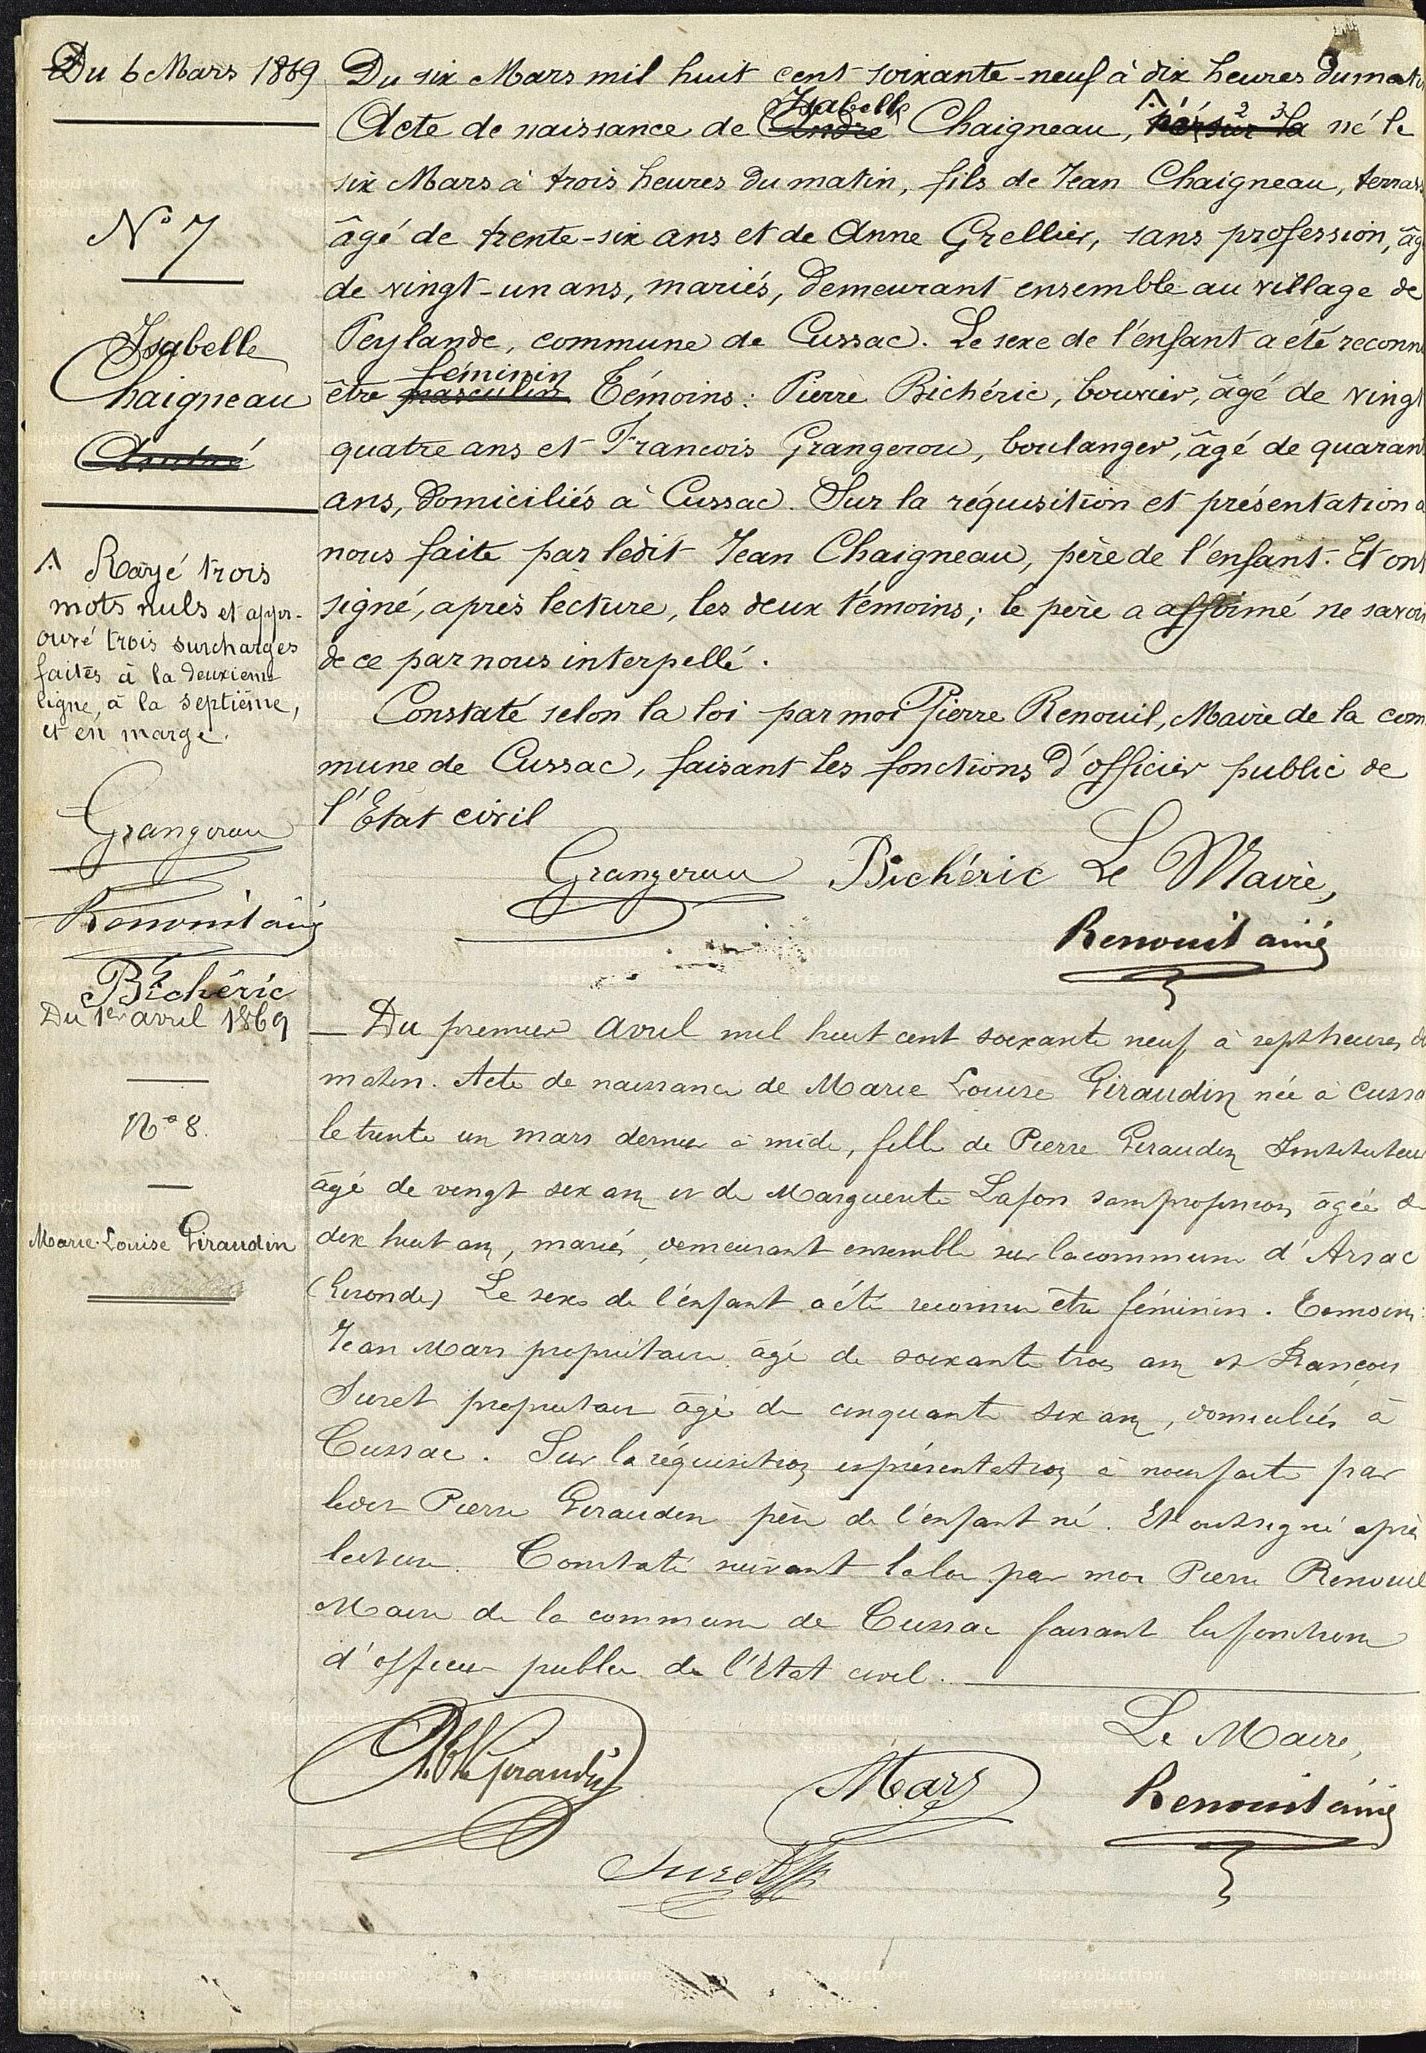 Du 6 Mars 1869
N° 7
Isabelle
Chaigneau
André
Rayé trois
mots nuls et appr-
ouvé trois surcharges
faites à la deuxieme
ligne, à la septième,
et en marge.
Grangerou
Renouil ainé
Bichéric
Du six Mars mil huit cent soixante-neuf à dix heures du mati
Isabelle
Acte de naissance de André Chaigneau, né sur la né le
six Mars à trois heures du matin, fils de Jean Chaigneau, terras
âgé de trente-six ans et de Anne Grellier, sans profession, âg
de vingt-un ans, mariés, demeurant ensemble au village de
Peylande, commune de Cussac. Le sexe de l'enfant a été reconn
féminin
être masculin Témoins: Pierre Bichéric, bouvier, âgé de vingt
quatre ans et Francois Grangerou, boulanger, âgé de quaran
ans, domiciliés à Cussac. Sur la réquisition et présentation à
nous faite par ledit Jean Chaigneau, père de l'enfant. Et ont
signé, après lecture, les deux témoins; le père a affirmé ne savoi
de ce par nous interpellé.
Constaté selon la loi par moi Pierre Renouil, Maire de la com
mune de Cussac, faisant les fonctions d'officier public de
l'Etat civil
Grangerou Bichéric Le Maire,
Renouil ainé
Du 1er avril 1869
N° 8.
Marie Louise Giraudin
Du premier avril mil huit cent soixante neuf à sept heures du
matin. Acte de naissance de Marie Louise Giraudin née à Cussa
le trente un mars dernier à midi, fille de Pierre Giraudin Instituteur
âgé de vingt six ans et de Marguerite Lafon sans profession âgée de
dix huit ans, mariés, demeurant ensemble sur la commune d'Arsac
(Gironde) Le sexe de l'enfant a été reconnu être féminin. Temoins:
Jean Mars propriétaire âgé de soixante trois ans et François
Suret propriétaire âgé de cinquante six ans, domiciliés à
Cussac. Sur la réquisition et présentation à nous faite par
ledit Pierre Giraudin père de l'enfant né. Et ont signé après
lecture. Constaté suivant la loi par moi Pierre Renouil
Maire de la commune de Cussac faisant les fonctions
d'officier public de l'Etat civil.
Le Maire,
Giraudin Mars Renouil ainé
Suret